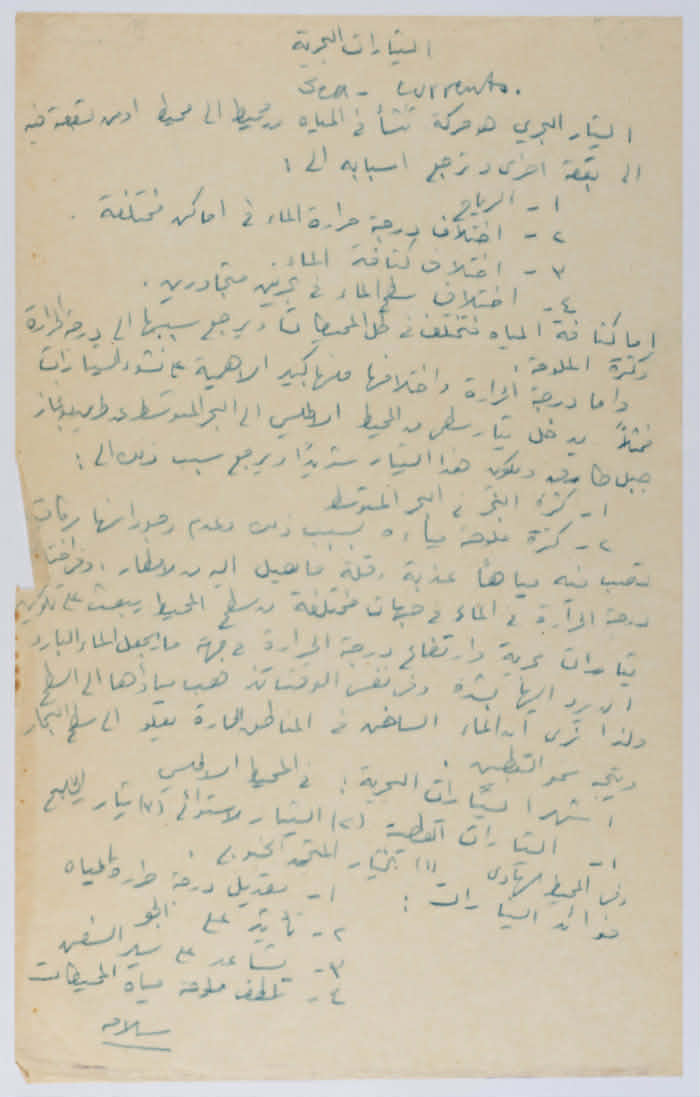 التيارات البحرية
Sea - Currents.
التيار البحري هو حركة تنشأ في المياه من محيط الى محيط او من بقعة فيه
الى بقعة اخرى وترجع اسبابه الى :
١ - الرياح
٢ - اختلاف درجة حرارة الماء في اماكن مختلفة .
٣ - اختلاف كثافة الماء
٤ - اختلاف سطح الماء في بحرين متجاورين .
اما كثافة المياه فتختلف في كل المحيطات ويرجع سببها الى درجة الحرارة
وكثرة الملوحة .
واما درجة الحرارة واختلافها فلها كبير الاهمية على نشوء التيارات
فمثلاً يدخل تيار سطحي من المحيط الاطلسي الى البحر المتوسط عن طريق بوغاز
جبل طارق ويكون هذا التيار شديدًا ويرجع سبب ذلك الى :
١ - كثرة البخر في البحر المتوسط
٢ - كثرة ملوحة مياهه بسبب ذلك وعدم وجود انهار كانت
تصب فيه مياهًا عذبة وقلة ما يصل اليه من الامطار ،
درجة الحرارة في الماء في جهات مختلفة من سطح المحيط يبعث على تكوين
تيارات بحرية وارتفاع درجة الحرارة في جهة ما يجعل الماء البارد
ان يرد اليها بشدة وفي نفس الوقت مياهها الى السطح
ولذا نرى ان الماء الساخن في المناطق الحارة يعلو الى سطح البحار
ويتجه نحو القطبين .
اشهر التيارات البحرية : في المحيط الاطلسي
١ - التيارات القطبية (٢) التيار الاستوائي (٣) تيار الخليج
وفي المحيط الهادي (١) التيار المتجمد الجنوبي .
فوائد التيارات : ١ - تعديل درجة حرارة المياه
٢ - تأثير على الجو
٣ - تساعد على سير السفن
٤ - تلطف ملوحة مياه المحيطات
سلامه